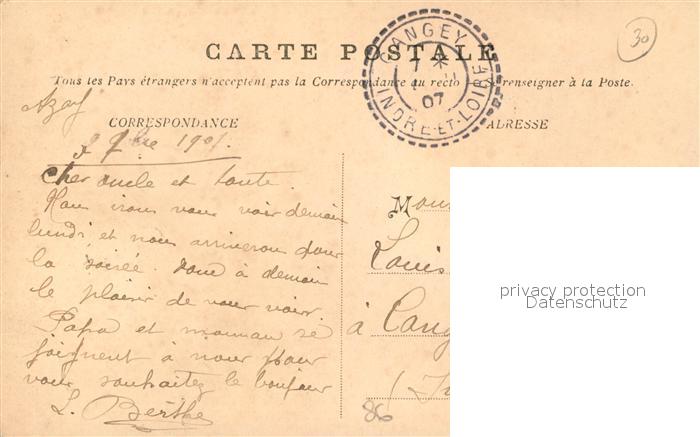 CARTE POSTALE
Tous les Pays étrangers n'acceptent pas la Correspondance au recto Se renseigner à la Poste.
CANGEY
07
INDRE-ET-LOIRE
30
CORRESPONDANCE
ADRESSE
9bre 1907
Cher oncle et tante.
Nous irons vous voir demain
lundi, et nous arriverons pour
la soirée. Donc à demain
le plaisir de vous voir.
Papa et maman se
joignent à nous pour
vous souhaitez le bonjour
L. Berthe
M
Louis
à Cang
86
privacy protection
Datenschutz